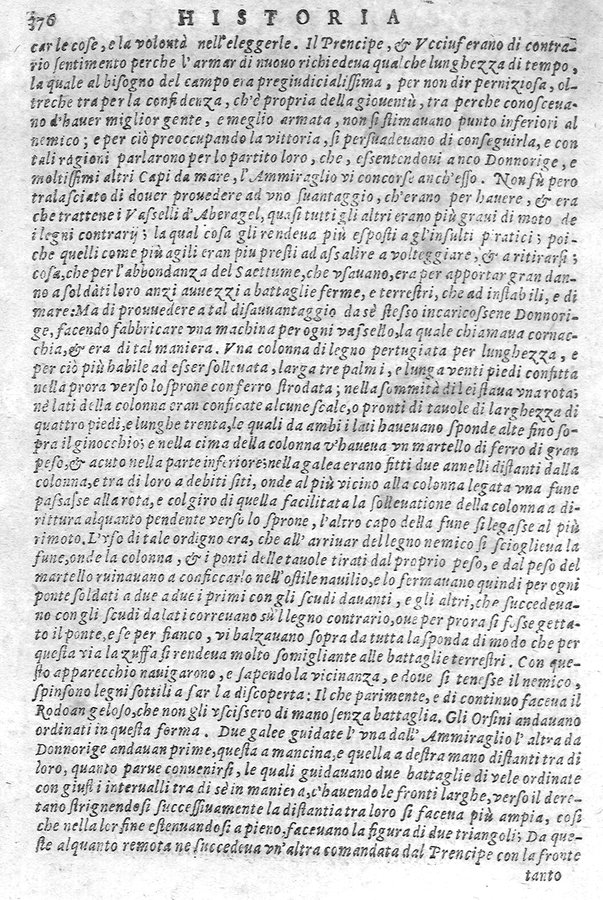 376 HISTORIA
car le cose, e la volontà nell'eleggerle. Il Prencipe, & Vcciuf erano di contra-
rio sentimento perche l'armar di nuouo richiedeua qualche lunghezza di tempo,
la quale al bisogno del campo era pregiudicialissima, per non dir perniziosa, ol-
treche tra per la confidenza, ch'è propria della giouentù, tra perche conosceua-
no d'hauer miglior gente, e meglio armata, non si stimauano punto inferiori al
nemico; e per ciò preoccupando la vittoria, si persuadeuano di conseguirla, e con
tali ragioni parlarono per lo partito loro, che, essentendoui anco Donnorige, e
moltissimi altri Capi da mare, l'Ammiraglio vi concorse anch'esso. Non fù pero
tralasciato di douer prouedere ad vno suantaggio, ch'erano per hauere, & era
che trattene i Vasselli d'Aberagel, quasi tutti gli altri erano più graui di moto de
i legni contrarij; la qual cosa gli rendeua più esposti a gl'insulti piratici; poi-
che quelli come più agili eran piu presti ad assalire a volteggiare, & a ritirarsi;
cosa, che per l'abbondanza del Saettume, che vsauano, era per apportar gran dan-
no a soldàti loro anzi auuezzi a battaglie ferme, e terrestri, che ad instabili, e di
mare: Ma di prouuedere a tal disauuantaggio da sè stesso incaricossene Donnori-
ge, facendo fabbricare vna machina per ogni vassello, la quale chiamaua cornac-
chia, & era di tal maniera. Vna colonna di legno pertugiata per lunghezza, e
per ciò più habile ad esser solleuata, larga tre palmi, e lunga venti piedi confitta
nella prora verso lo sprone con ferro strodata; nella sommità di lei staua vna rota;
nè lati della colonna eran conficate alcune scale, o pronti di tauole di larghezza di
quattro piedi, e lunghe trenta, le quali da ambi i lati haueuano sponde alte fino so-
pra il ginocchio; e nella cima della colonna v'haueua vn martello di ferro di gran
peso, & acuto nella parte inferiore: nella galea erano fitti due annelli distanti dalla
colonna, e tra di loro a debiti siti, onde al più vicino alla colonna legata vna fune
passasse alla rota, e col giro di quella facilitata la solleuatione della colonna a di-
rittura alquanto pendente verso lo sprone, l'altro capo della fune si legasse al più
rimoto. L'vso di tale ordigno era, che all' arriuar del legno nemico si scioglieua la
fune, onde la colonna, & i ponti delle tauole tirati dal proprio peso, e dal peso del
martello ruinauano a conficcarlo nell'ostile nauilio, e lo fermauano quindi per ogni
ponte soldati a due a due i primi con gli scudi dauanti, e gli altri, che succedeua-
no con gli scudi da lati correuano sù'l legno contrario, oue per prora si fosse getta-
to il ponte, e se per fianco, vi balzauano sopra da tutta la sponda di modo che per
questa via la zuffa si rendeua molto somigliante alle battaglie terrestri. Con que-
sto apparecchio nauigarono, e sapendo la vicinanza, e doue si tenesse il nemico,
spinsono legni sottili a far la discoperta: Il che parimente, e di continuo faceua il
Rodoan geloso, che non gli vscissero di mano senza battaglia. Gli Orsini andauano
ordinati in questa forma. Due galee guidate l'vna dall' Ammiraglio l' altra da
Donnorige andauan prime, questa a mancina, e quella a destra mano distanti tra di
loro, quanto parue conuenirsi, le quali guidauano due battaglie di vele ordinate
con giusti interualli tra di sè in maniera, c'hauendo le fronti larghe, verso il dere-
tano strignendosi successiuamente la distantia tra loro si faceua più ampia, così
che nella lor fine estenuandosi a pieno, faceuano la figura di due triangoli; Da que-
ste alquanto remota ne succedeua vn'altra comandata dal Prencipe con la fronte
tanto